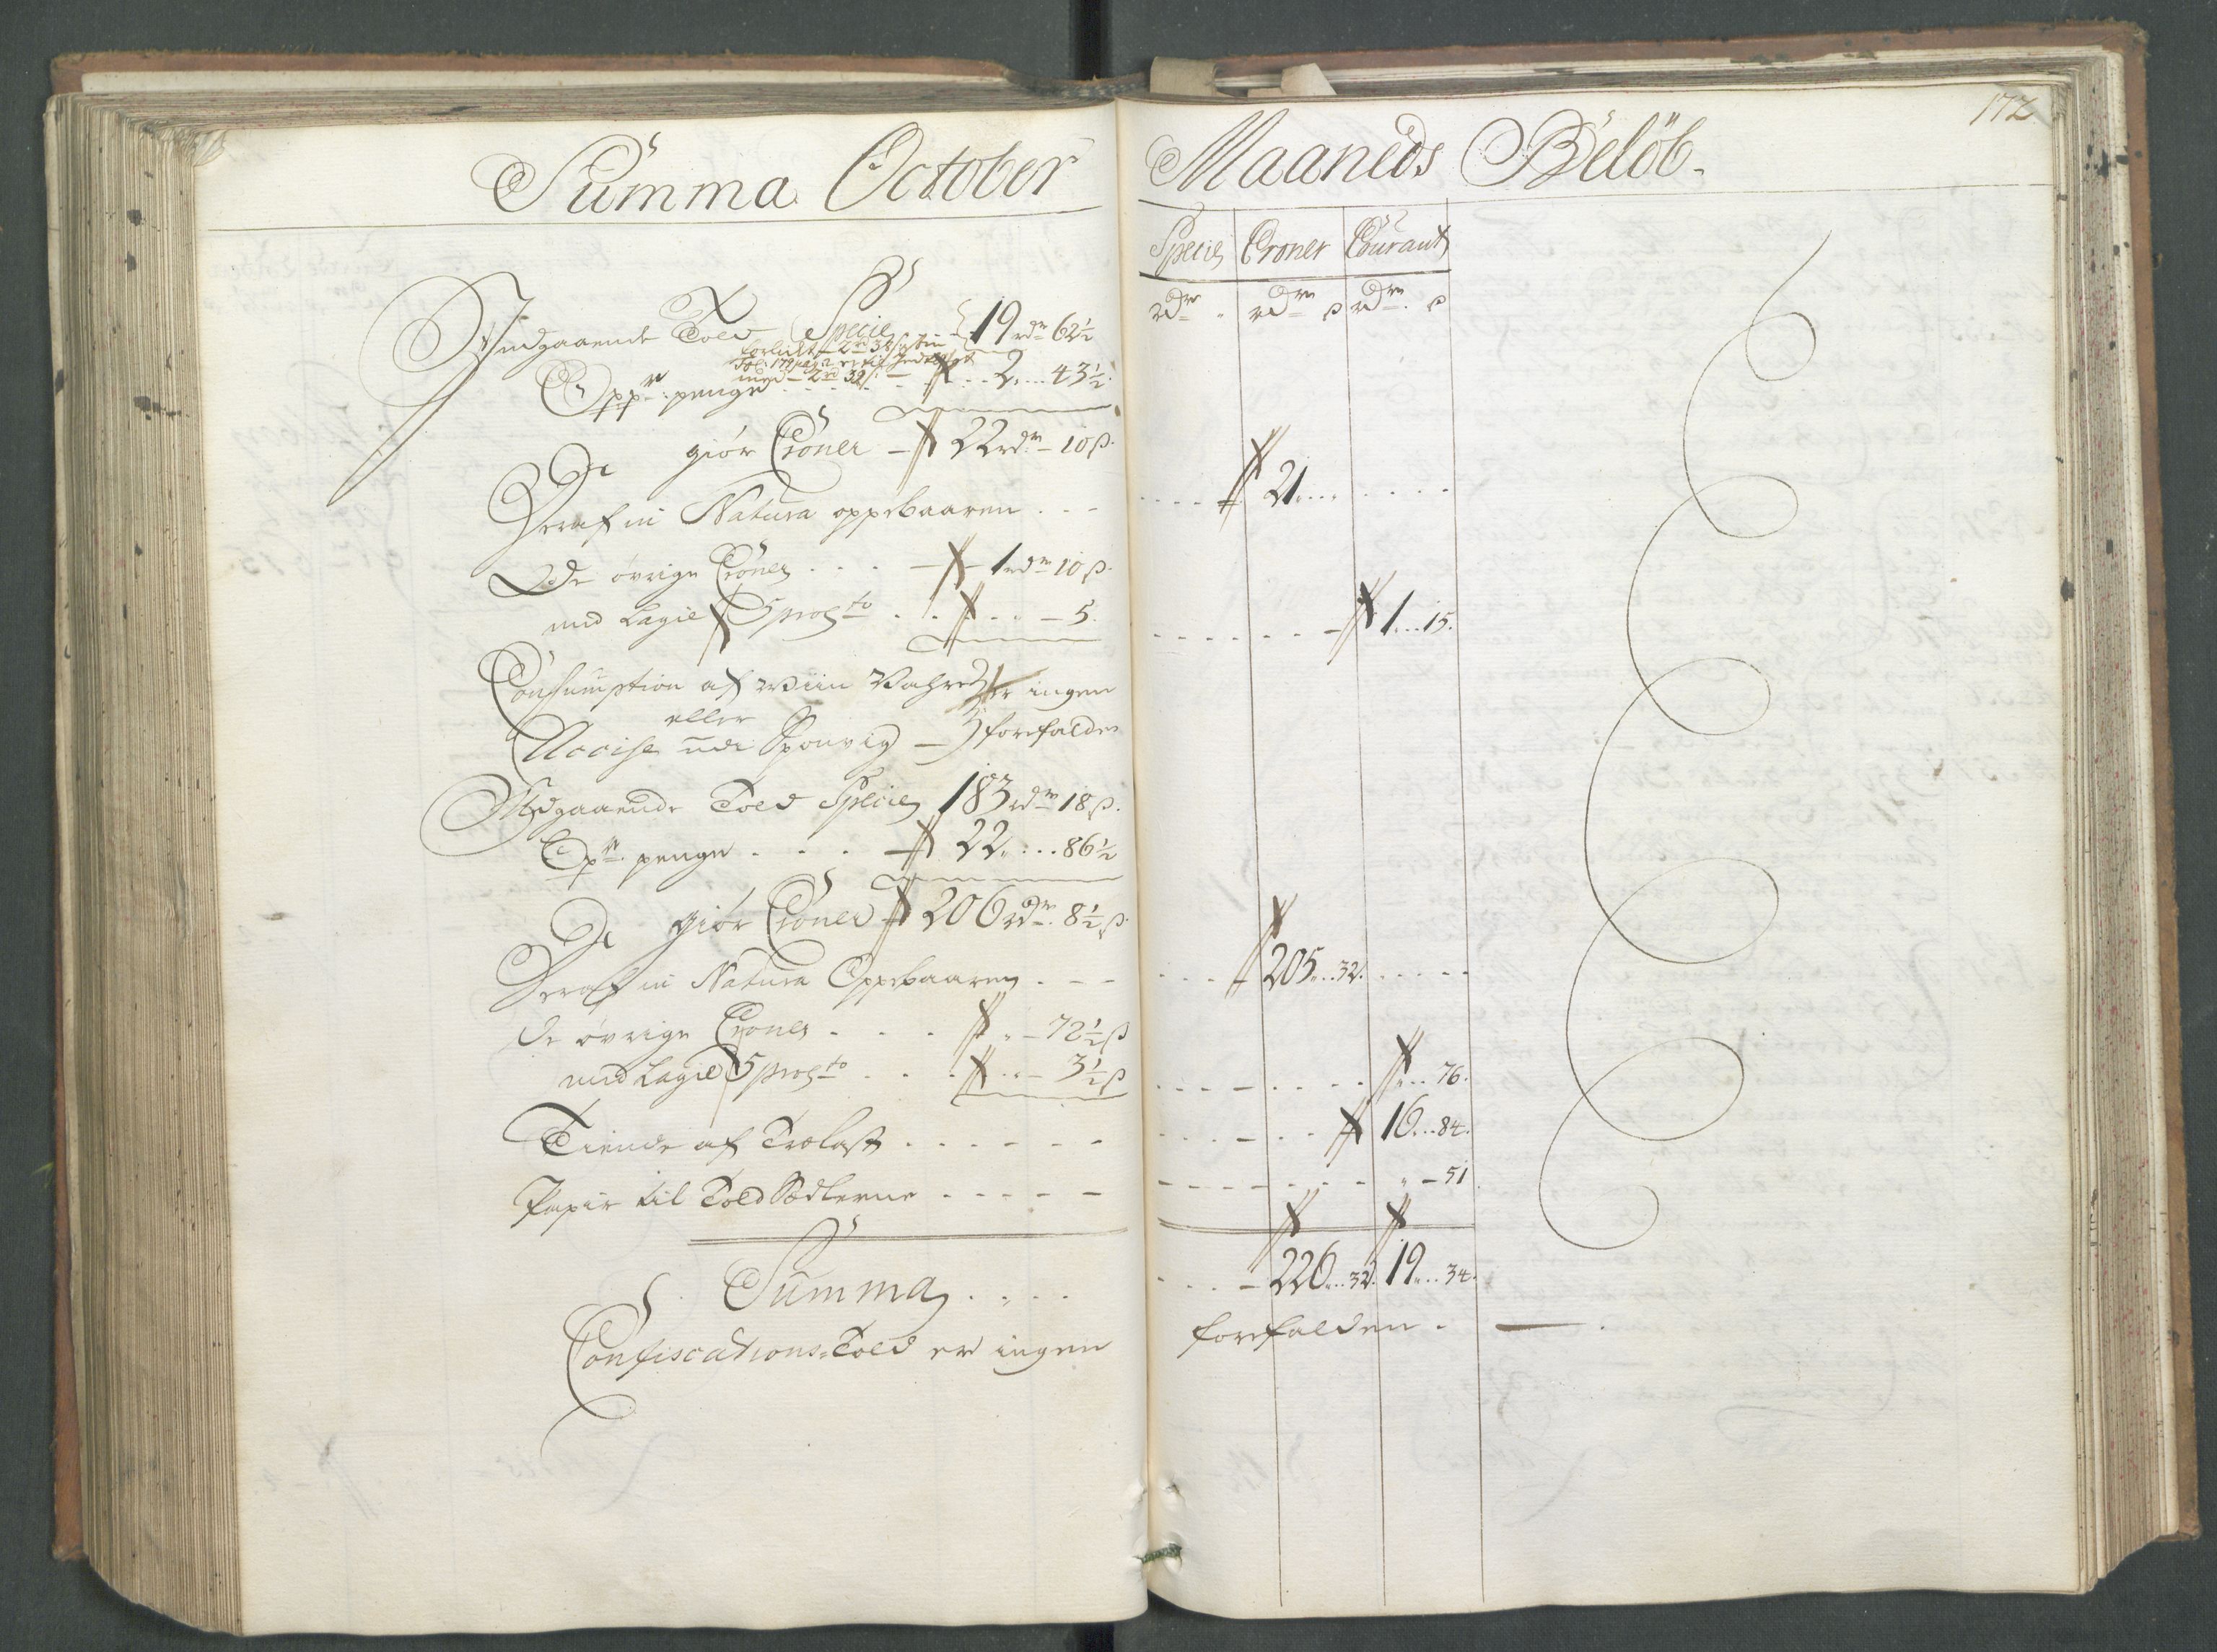 172
Summa October Maaneds Beløb.
Specie Croner Courant
rdr rdr ß rdr ß
Indgaaende Told Specie 19 rdr 62½
Opp: penge 2 43½
De giør Croner 22 rdr 10 ß
Deraf in Natura oppebaaren 21
De øvrige Croner 1 rdr 10 ß
med Lagie 5 procto 5. 1 15.
Consumption af Wiin Vahre er ingen
eller
Accise forefalden
Udgaaende Told Specie 183 rdr 18 ß
Opr penge 22 86½
De giør Croner 206 rdr 8½ ß
Deraf in Natura Oppebaaren 205 32.
de øvrige Croner 72½ ß
med Lagie 5 procto 3½ ß 76.
Tiende af Trælast 16 84.
Papir til Told Sedlerne 51
Summa 226 32. 19 34.
Confiscations-Told er ingen forefalden.